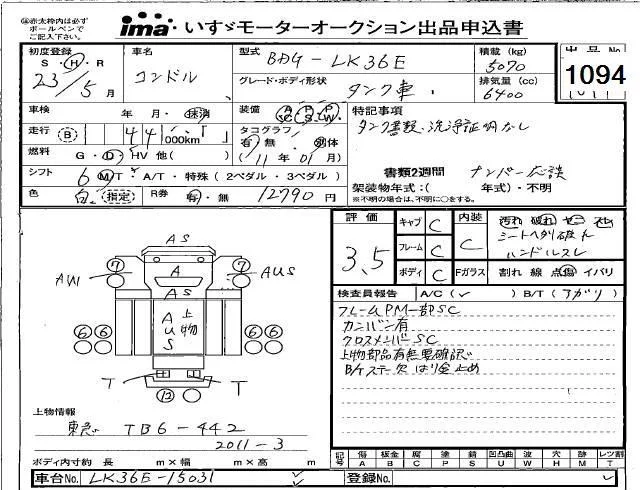 (注)赤太枠内は必ず
ボールペンで
ご記入下さい。
ima いすゞモーターオークション出品申込書
初度登録 S・H・R 23/5月
車名 コンドル
型式 BDG-LK36E
積載 (kg) 5070
出品No. 1094
グレード・ボディ形状 タンク車
排気量 (cc) 6400
車検 年・月・抹消
装備 A/C P/S P/W
特記事項
走行 B 44,000km
タコグラフ 有・無 別体
(11年01月)
タンク書類・洗浄証明なし
燃料 G・D・HV 他( )
シフト 6 MT・A/T・特殊(2ペダル・3ペダル)
書類2週間 ナンバー応談
架装物年式:( 年式)・不明
※不明の場合は、不明に○をする。
色 白 指定 R券 有・無 12790円
評価 3.5
キャブ C
フレーム C
ボディ C
内装 C
Fガラス
汚れ 破れ
シートヘタリ破れ
ハンドルスレ
割れ 線 点傷 イバリ
検査員報告 A/C(✓) B/T(フガリ)
フレームPM一部SC
カンバン有
クロスメンバSC
上物部品有無要確認
B/Kステー欠 はり金止め
AS
7 7
AW A AUS
AS
AUS 上物
6 6 6 6
T T
12
上物情報
東急 TB6-442
2011-3
ボディ内寸約 長 m×幅 m×高 m
記号 傷 A 板金 B 腐 C 塗 P 錆 S 凹凸曲 U 波 W 穴 H 跡 M レツ割 T
車台No. LK36E-15031
登録No.